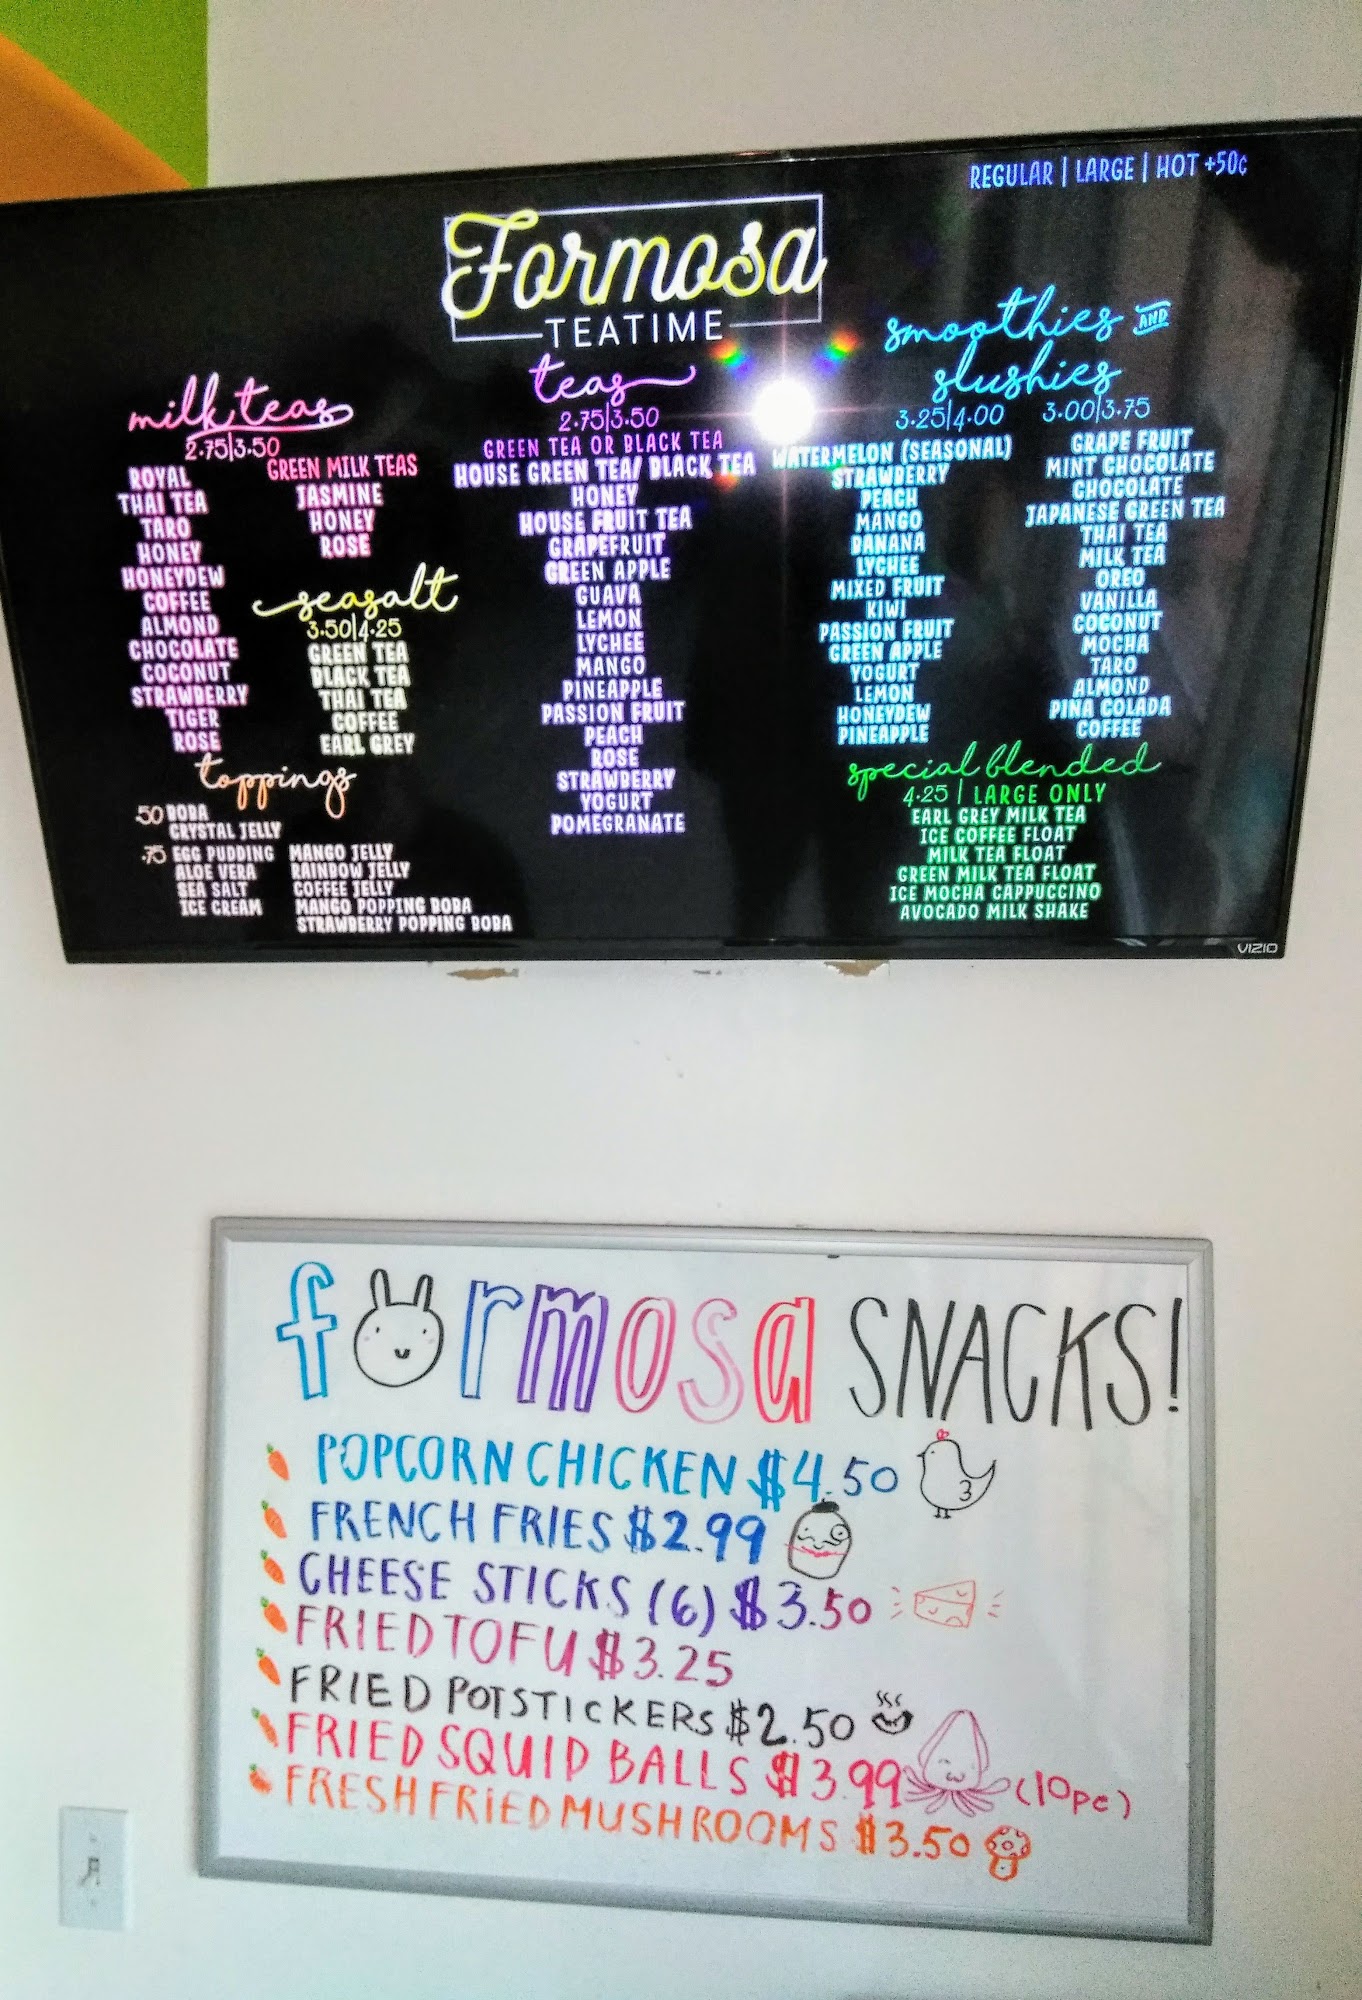 REGULAR | LARGE | HOT +50¢
Formosa
TEATIME
milk teas
2.75|3.50
ROYAL
THAI TEA
TARO
HONEY
HONEYDEW
COFFEE
ALMOND
CHOCOLATE
COCONUT
STRAWBERRY
TIGER
ROSE
GREEN MILK TEAS
JASMINE
HONEY
ROSE
seasalt
3.50|4.25
GREEN TEA
BLACK TEA
THAI TEA
COFFEE
EARL GREY
toppings
.50 BOBA
CRYSTAL JELLY
.75 EGG PUDDING
ALOE VERA
SEA SALT
ICE CREAM
MANGO JELLY
RAINBOW JELLY
COFFEE JELLY
MANGO POPPING BOBA
STRAWBERRY POPPING BOBA
teas
2.75|3.50
GREEN TEA OR BLACK TEA
HOUSE GREEN TEA/ BLACK TEA
HONEY
HOUSE FRUIT TEA
GRAPEFRUIT
GREEN APPLE
GUAVA
LEMON
LYCHEE
MANGO
PINEAPPLE
PASSION FRUIT
PEACH
ROSE
STRAWBERRY
YOGURT
POMEGRANATE
smoothies AND
slushies
3.25|4.00
WATERMELON (SEASONAL)
STRAWBERRY
PEACH
MANGO
BANANA
LYCHEE
MIXED FRUIT
KIWI
PASSION FRUIT
GREEN APPLE
YOGURT
LEMON
HONEYDEW
PINEAPPLE
3.00|3.75
GRAPE FRUIT
MINT CHOCOLATE
CHOCOLATE
JAPANESE GREEN TEA
THAI TEA
MILK TEA
OREO
VANILLA
COCONUT
MOCHA
TARO
ALMOND
PINA COLADA
COFFEE
special blended
4.25 | LARGE ONLY
EARL GREY MILK TEA
ICE COFFEE FLOAT
MILK TEA FLOAT
GREEN MILK TEA FLOAT
ICE MOCHA CAPPUCCINO
AVOCADO MILK SHAKE
VIZIO
formosa SNACKS!
POPCORN CHICKEN $4.50
FRENCH FRIES $2.99
CHEESE STICKS (6) $3.50
FRIED TOFU $3.25
FRIED POTSTICKERS $2.50
FRIED SQUID BALLS $3.99 (10pc)
FRESH FRIED MUSHROOMS $3.50